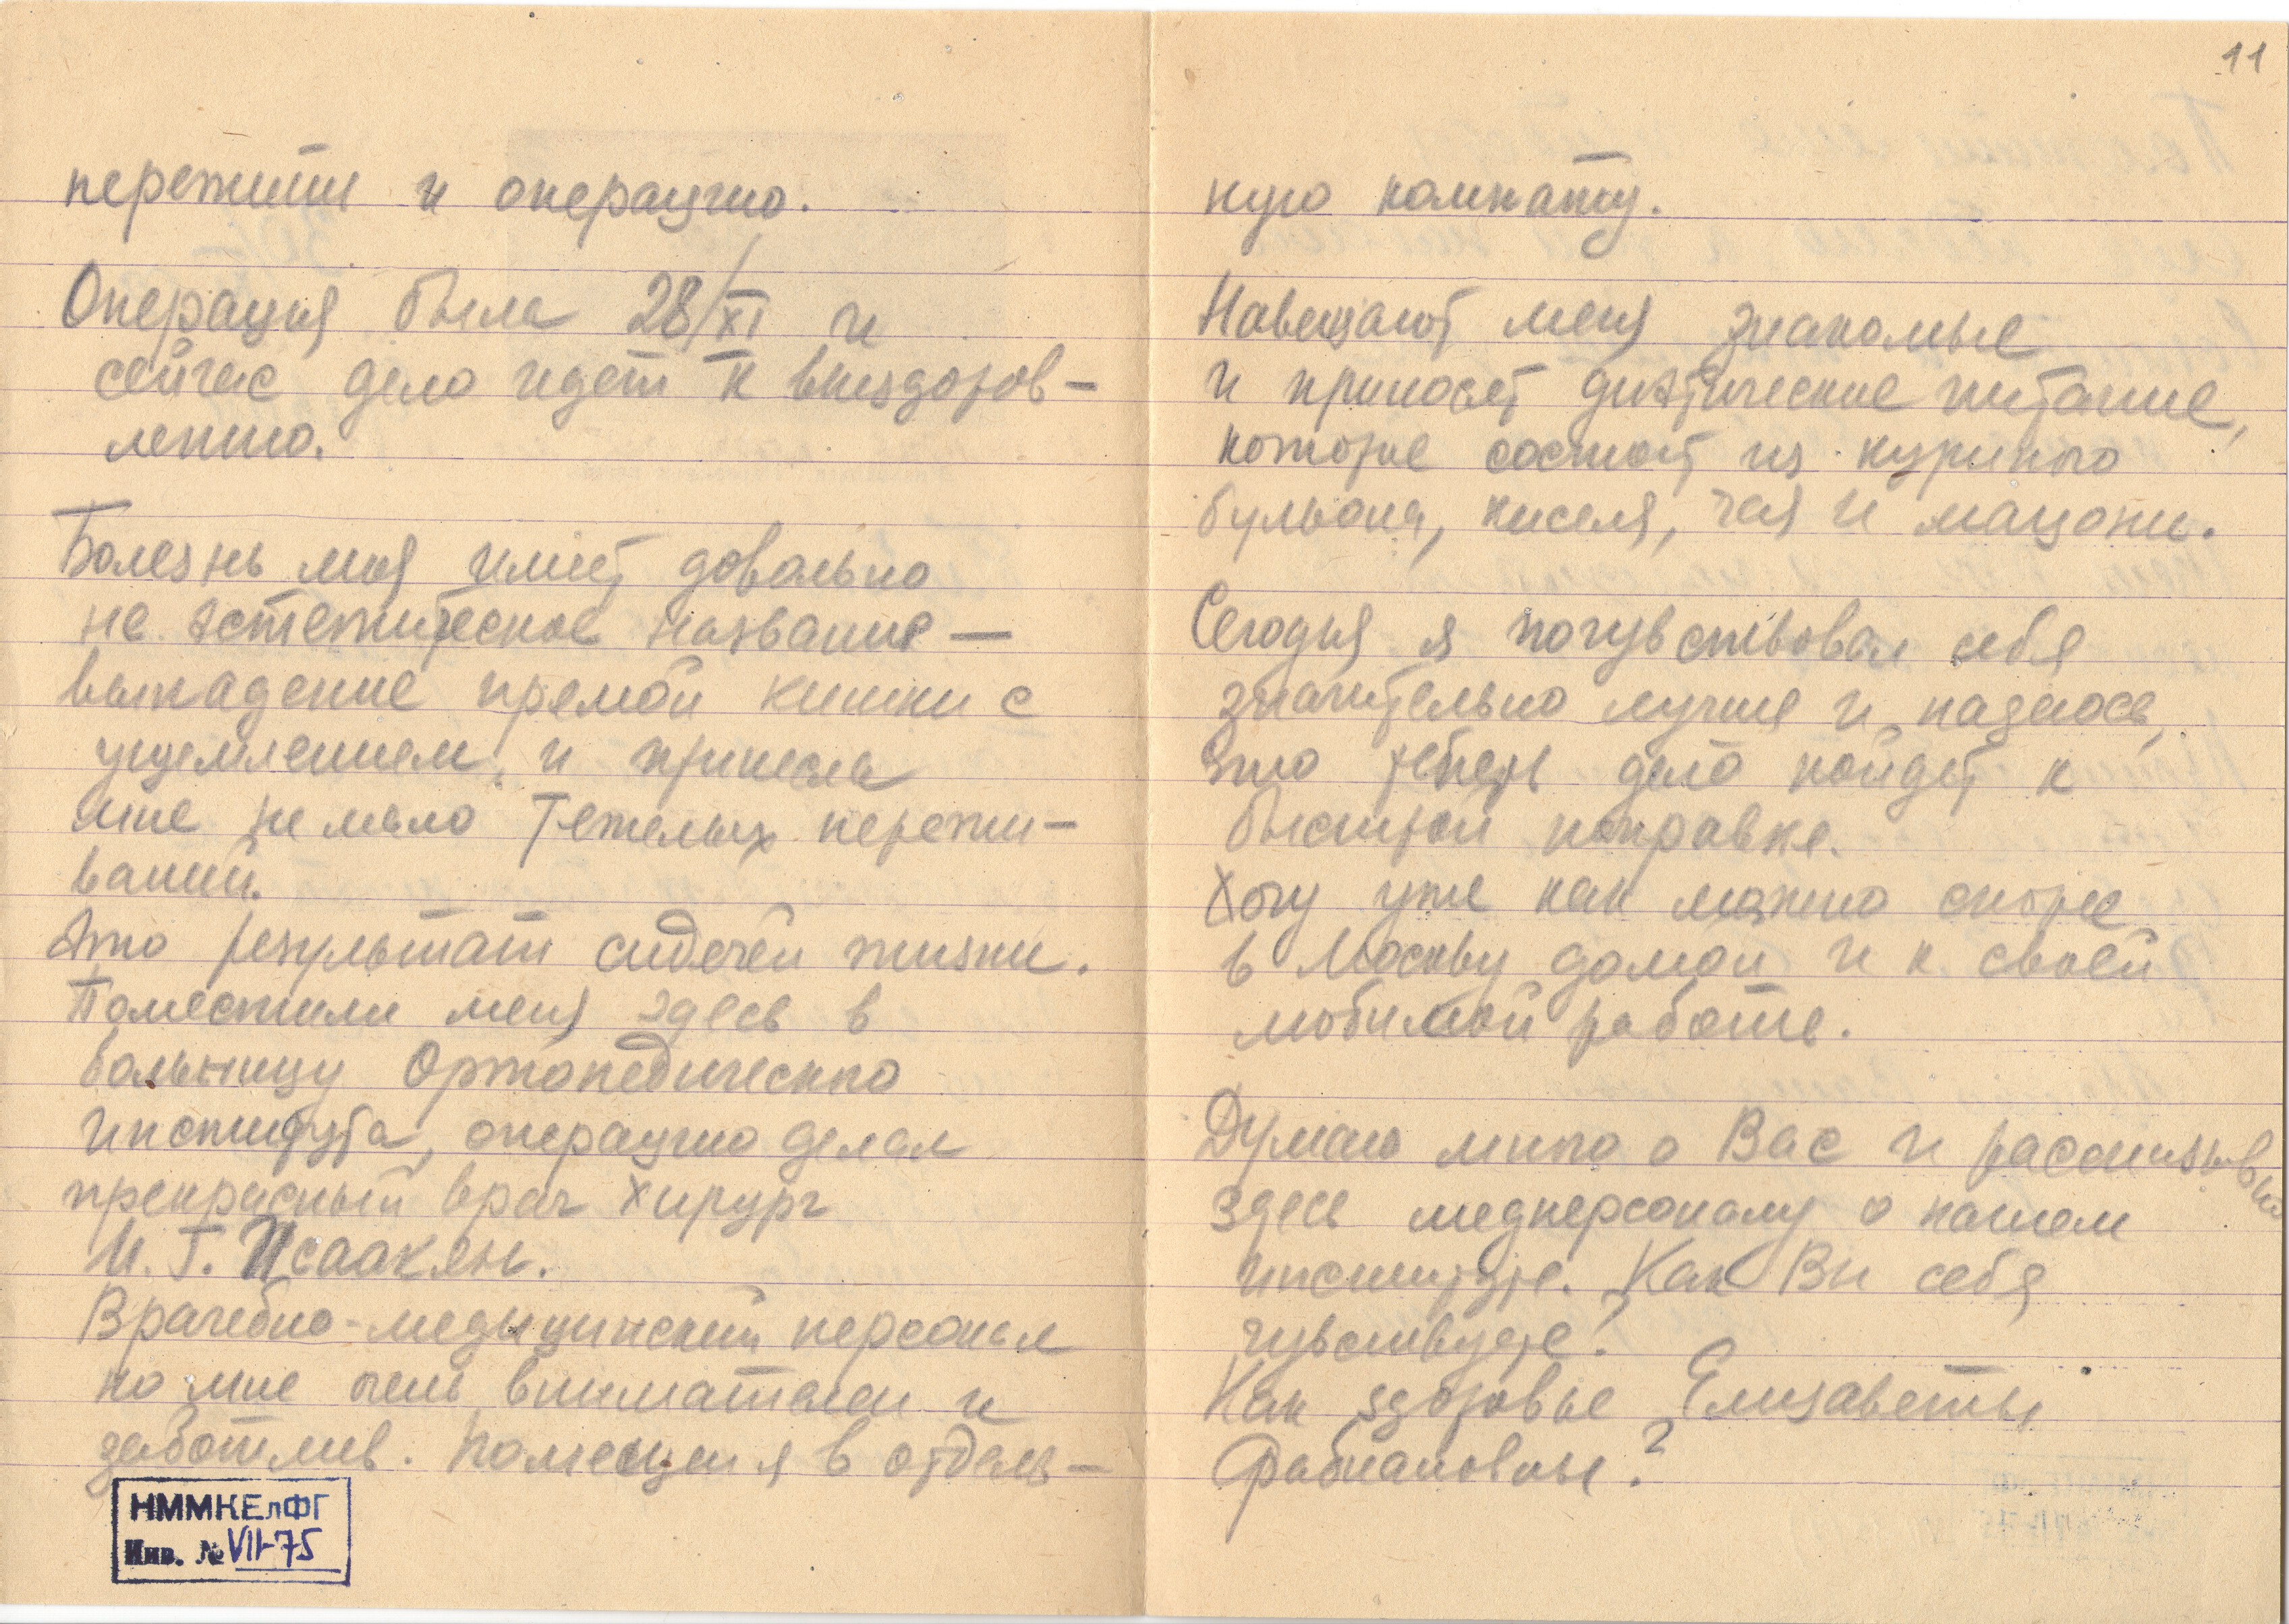 пережити и операцию.
Операция была 28/XI и
сейчас дело идет к выздоров-
лению.
Болезнь моя имеет довольно
не эстетическое название —
выпадение премой кишки с
ущемлением, и принесла
мне не мало тежелых пережи-
ваний.
Это результат сидечей жизни.
Поместили меня здесь в
больницу Ортопедическго
института, операцию делал
прекрасный врач хирург
И. Г. Исаакян.
Врачебно-медыцинский персонал
ко мне очень внимателен и
заботлив. Помещен я в отдель-
НММКЕлФГ
Инв. № VII-75
11
ную комнату.
Навещают меня знакомые
и приносят диэтические питание,
которые состоит из куриного
бульона, киселя, чая и мацони.
Сегодня я почувствовал себя
значительно лучше и надеюсь,
что теперь дело пойдет к
быстрой поправке.
Хочу уже как можно скорее
в Москву домой и к своей
любимой работе.
Думаю много о Вас и расспазываю
здесь медперсоналу о нашем
институте. Как Вы себя
чувствуете?
Как здоровье Елизаветы
Фабиановны?